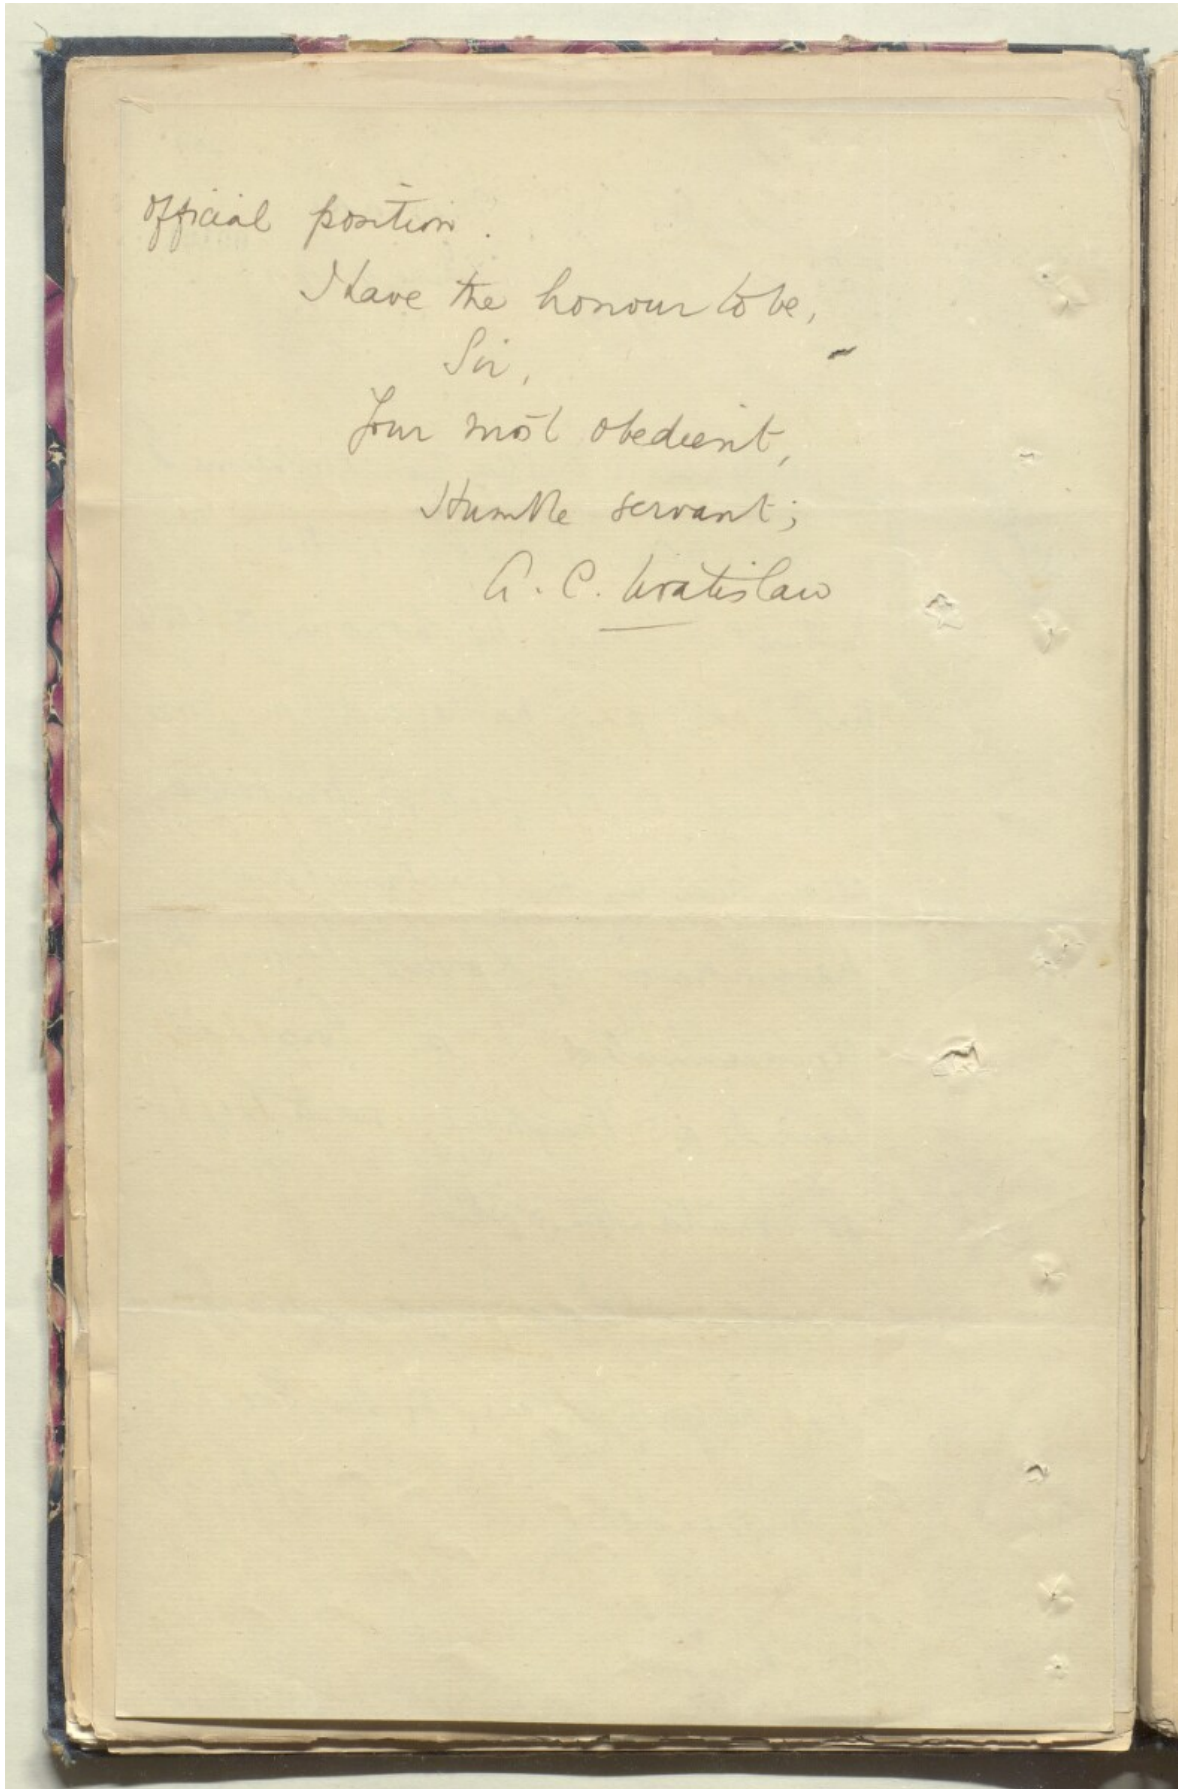 official position.
I have the honour to be,
Sir,
Your most obedient,
Humble servant;
A. C. Wratislaw